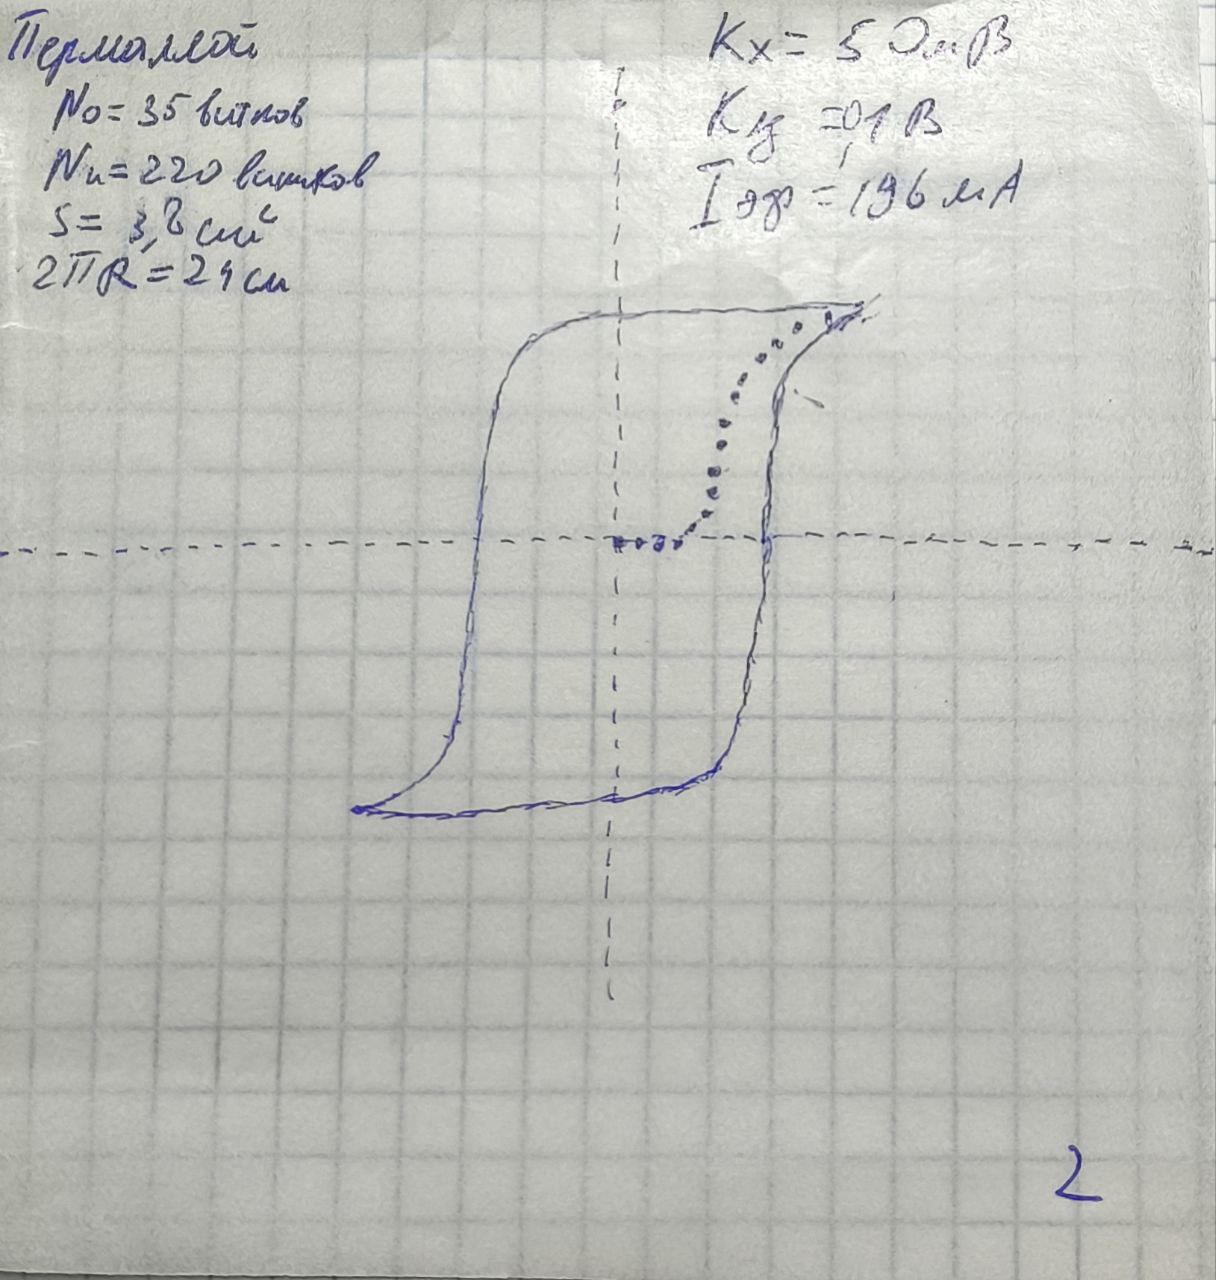 Пермаллой
N₀ = 35 витков
Nᵤ = 220 витков
S = 3,8 см²
2ПR = 24 см
Kx = 50 мВ
Ky = 0,1 В
Iэф = 196 мА
2